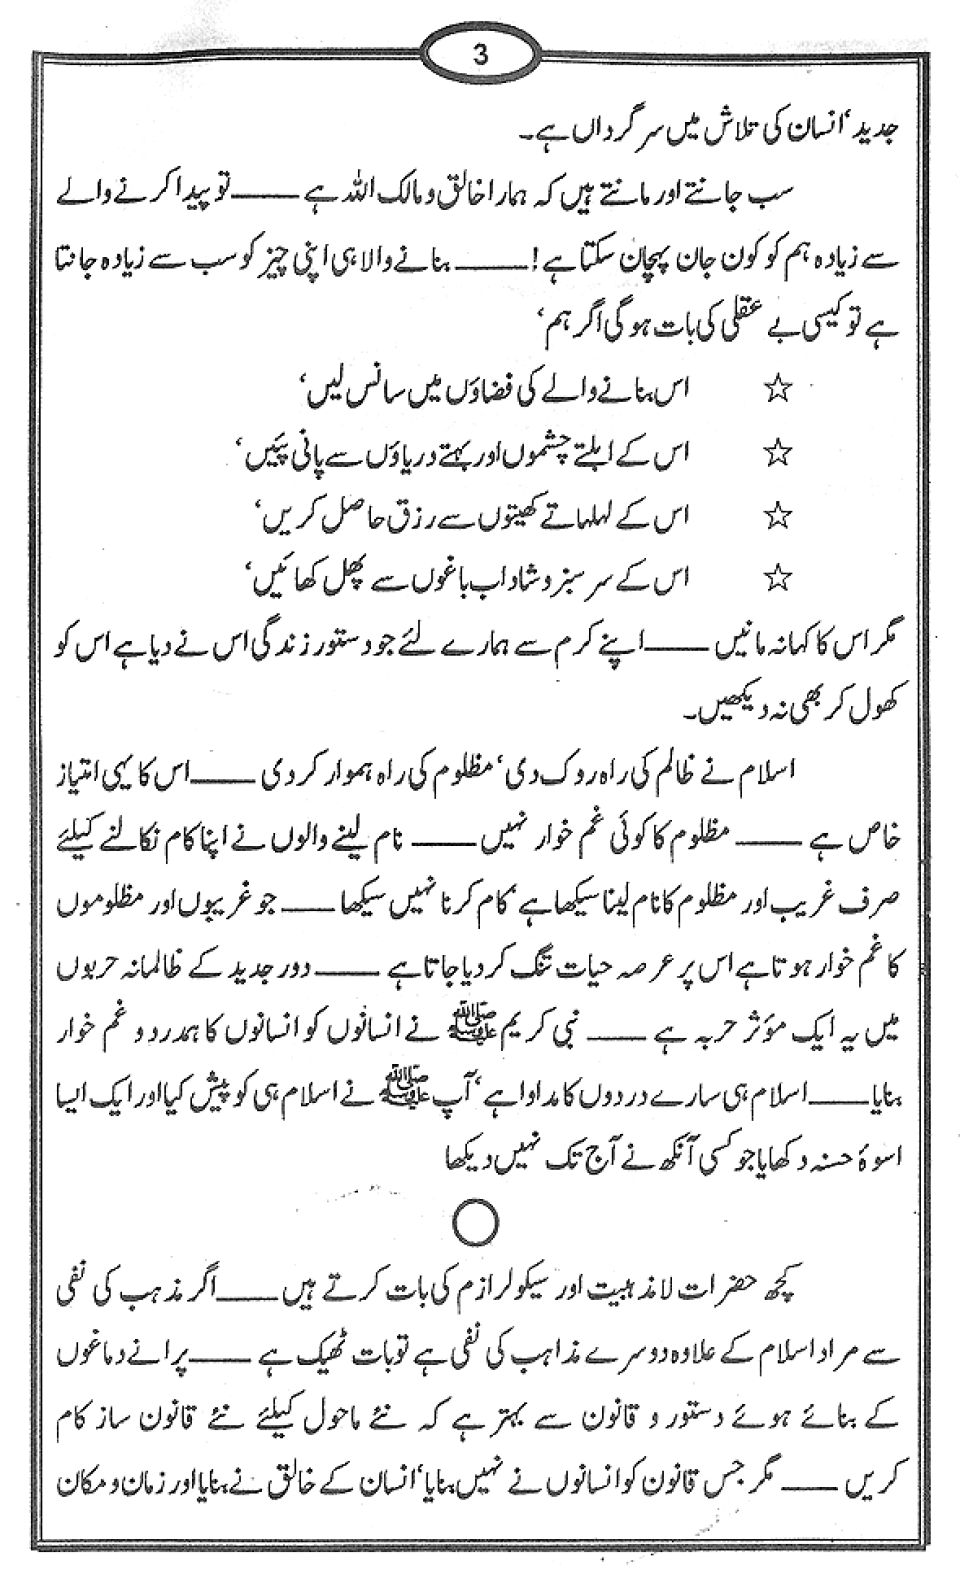 3
جدید‘ انسان کی تلاش میں سرگرداں ہے۔
سب جانتے اور مانتے ہیں کہ ہمارا خالق و مالک اللہ ہے ـــــــ تو پیدا کرنے والے
سے زیادہ ہم کو کون جان پہچان سکتا ہے! ـــــــ بنانے والا ہی اپنی چیز کو سب سے زیادہ جانتا
ہے تو کیسی بے عقلی کی بات ہوگی اگر ہم‘
☆ اس بنانے والے کی فضاؤں میں سانس لیں‘
☆ اس کے ابلتے چشموں اور بہتے دریاؤں سے پانی پئیں‘
☆ اس کے لہلہاتے کھیتوں سے رزق حاصل کریں‘
☆ اس کے سرسبز و شاداب باغوں سے پھل کھائیں‘
مگر اس کا کہا نہ مانیں ـــــــ اپنے کرم سے ہمارے لئے جو دستور زندگی اس نے دیا ہے اس کو
کھول کر بھی نہ دیکھیں۔
اسلام نے ظالم کی راہ روک دی‘ مظلوم کی راہ ہموار کر دی ـــــــ اس کا یہی امتیاز
خاص ہے ـــــــ مظلوم کا کوئی غم خوار نہیں ـــــــ نام لینے والوں نے اپنا کام نکالنے کیلئے
صرف غریب اور مظلوم کا نام لینا سیکھا ہے‘ کام کرنا نہیں سیکھا ـــــــ جو غریبوں اور مظلوموں
کا غم خوار ہوتا ہے اس پر عرصہ حیات تنگ کر دیا جاتا ہے ـــــــ دور جدید کے ظالمانہ حربوں
میں یہ ایک مؤثر حربہ ہے ـــــــ نبی کریم ﷺ نے انسانوں کو انسانوں کا ہمدرد و غم خوار
بنایا ـــــــ اسلام ہی سارے دردوں کا مداوا ہے‘ آپ ﷺ نے اسلام ہی کو پیش کیا اور ایک ایسا
اسوۂ حسنہ دکھایا جو کسی آنکھ نے آج تک نہیں دیکھا
کچھ حضرات لا مذہبیت اور سیکولرازم کی بات کرتے ہیں ـــــــ اگر مذہب کی نفی
سے مراد اسلام کے علاوہ دوسرے مذاہب کی نفی ہے تو بات ٹھیک ہے ـــــــ پرانے دماغوں
کے بنائے ہوئے دستور و قانون سے بہتر ہے کہ نئے ماحول کیلئے نئے قانون ساز کام
کریں ـــــــ مگر جس قانون کو انسانوں نے نہیں بنایا‘ انسان کے خالق نے بنایا اور زمان و مکان